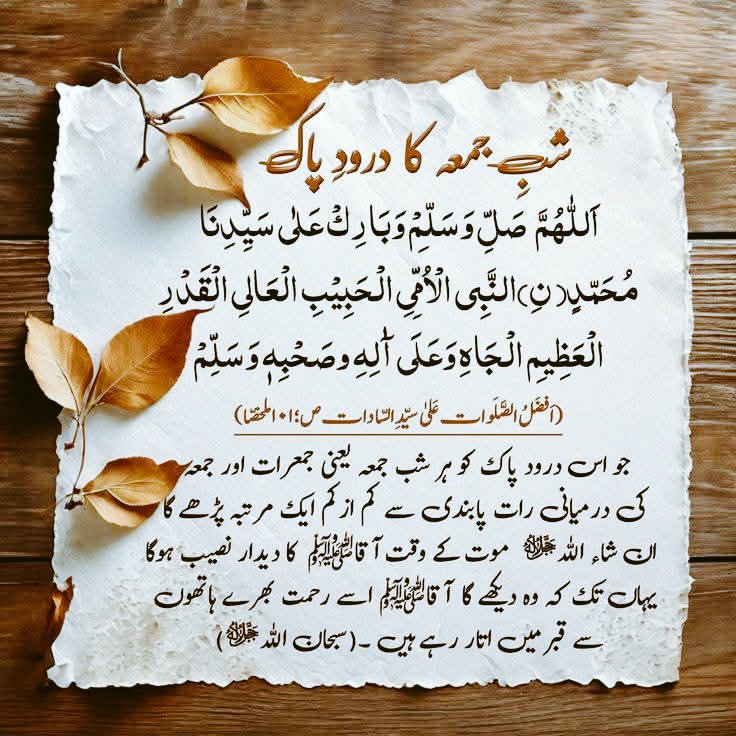 شبِ جمعہ کا درودِ پاک
اَللّٰهُمَّ صَلِّ وَسَلِّمْ وَبَارِكْ عَلٰی سَيِّدِنَا
مُحَمَّدٍ(نِ)النَّبِی الْاُمِّیِ الْحَبِيْبِ الْعَالِی الْقَدْرِ
الْعَظِيْمِ الْجَاهِ وَعَلَی آلِهٖ وصَحْبِهٖ وَسَلِّمْ
(اَفضَلُ الصَّلَوات عَلیٰ سیِّدِ السّادات ص؛۱۰۱ ملخصًا)
جو اس درود پاک کو ہر شب جمعہ یعنی جمعرات اور جمعہ
کی درمیانی رات پابندی سے کم از کم ایک مرتبہ پڑھے گا
ان شاء اللہ ﷻ موت کے وقت آقا ﷺ کا دیدار نصیب ہوگا
یہاں تک کہ وہ دیکھے گا آقا ﷺ اسے رحمت بھرے ہاتھوں
سے قبر میں اتار رہے ہیں ۔(سبحان اللہ ﷻ)